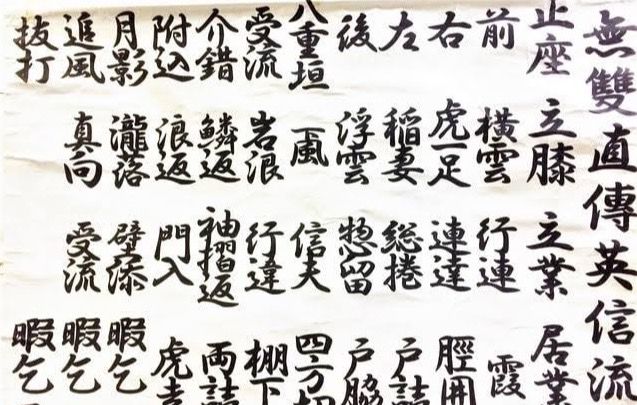 無雙直傳英信流
正座 立膝 立業 居業
前 横雲 行連 霞
右 虎一足 連達 脛囲
左 稲妻 総捲 戸詰
後 浮雲 惣留 戸脇
八重垣 颪 信夫 四方切
受流 岩浪 行違 棚下
介錯 鱗返 袖摺返 両詰
附込 浪返 門入 虎走
月影 瀧落 壁添 暇乞
追風 真向 受流 暇乞
抜打 暇乞